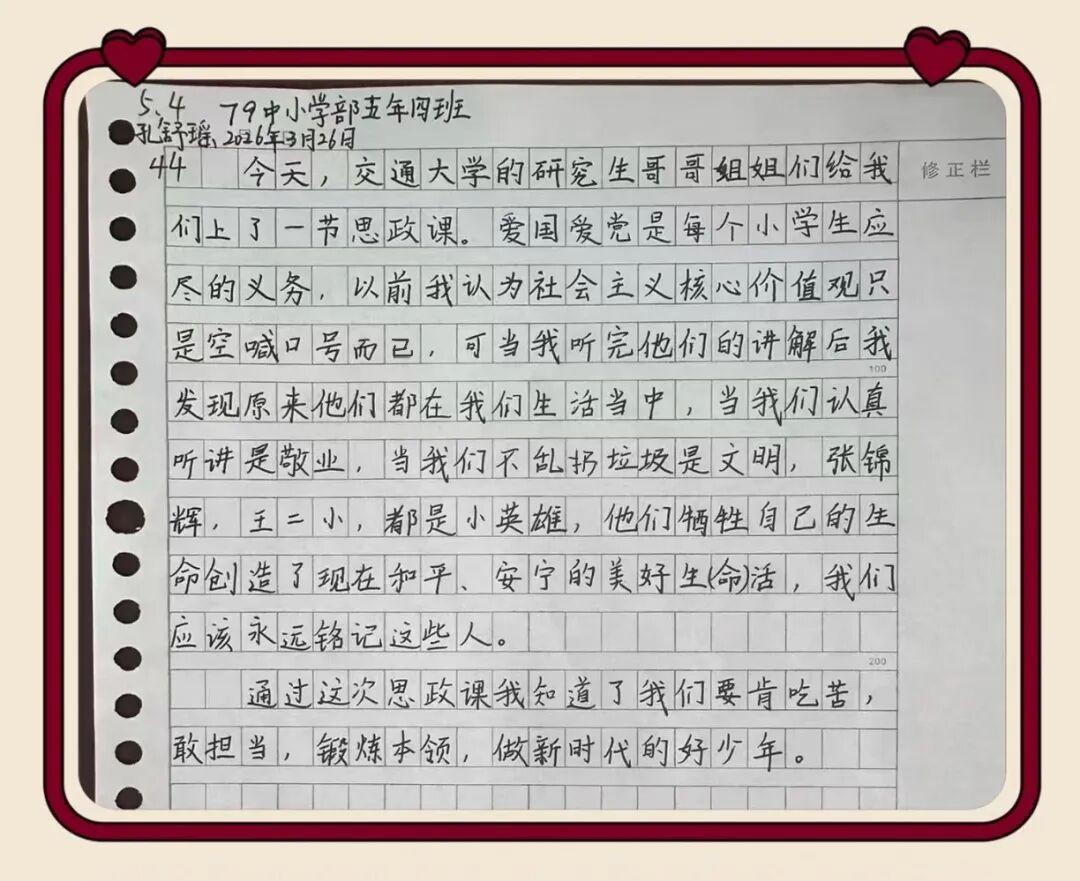 5.4 79中小学部五年四班
孔舒瑶 2026年3月26日
44 今天，交通大学的研究生哥哥姐姐们给我
修正栏
们上了一节思政课。爱国爱党是每个小学生应
尽的义务，以前我认为社会主义核心价值观只
是空喊口号而已，可当我听完他们的讲解后我
100
发现原来他们都在我们生活当中，当我们认真
听讲是敬业，当我们不乱扔垃圾是文明，张锦
辉，王二小，都是小英雄，他们牺牲自己的生
命创造了现在和平、安宁的美好生(命)活，我们
应该永远铭记这些人。
200
通过这次思政课我知道了我们要肯吃苦，
敢担当，锻炼本领，做新时代的好少年。